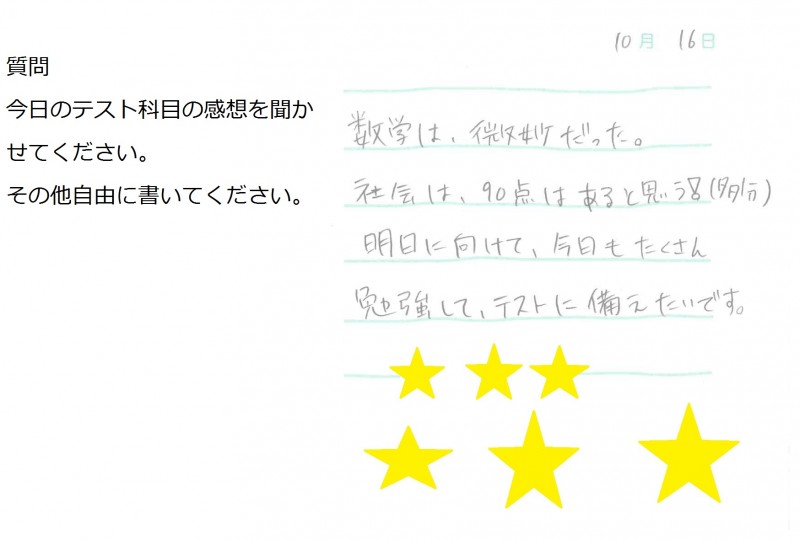 質問
今日のテスト科目の感想を聞か
せてください。
その他自由に書いてください。
10月 16日
数学は、微妙だった。
社会は、90点はあると思う(多分)
明日に向けて、今日もたくさん
勉強して、テストに備えたいです。